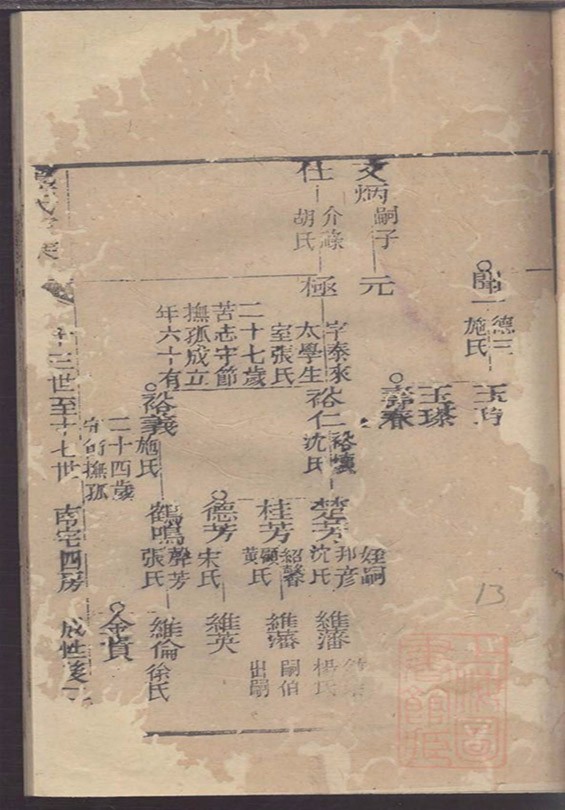 文炳
嗣子
元
仕
介祿
胡氏
極
字泰來
太學生
室張氏
二十七歲
苦志守節
撫孤成立
年六十有
聞一
德三
施氏
玉琴
壽春
裕仁
裕慎
沈氏
裕義
施氏
二十四歲
守節撫孤
楚芳
邦彥
沈氏
姪嗣
桂芳
紹馨
黃氏
德芳
宋氏
鶴鳴
聲芳
張氏
維藩
楊氏
維藩
嗣伯
出嗣
維英
維倫
徐氏
金貴
十三世至十七世
南宅四房
成性後
13